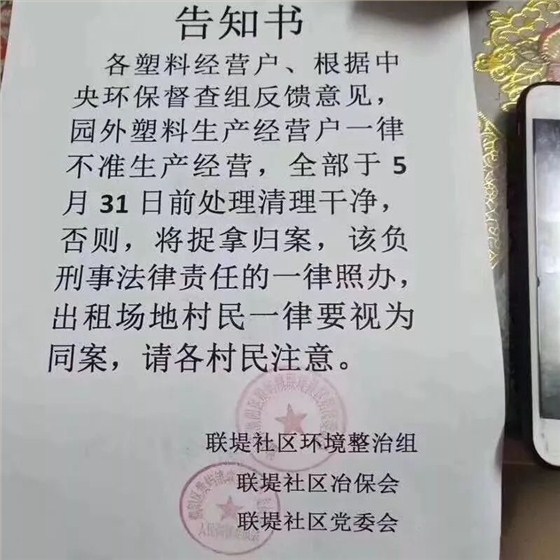 告知书
各塑料经营户、根据中
央环保督查组反馈意见，
园外塑料生产经营户一律
不准生产经营，全部于 5
月 31 日前处理清理干净，
否则，将捉拿归案，该负
刑事法律责任的一律照办，
出租场地村民一律要视为
同案，请各村民注意。
联堤社区环境整治组
联堤社区冶保会
联堤社区党委会